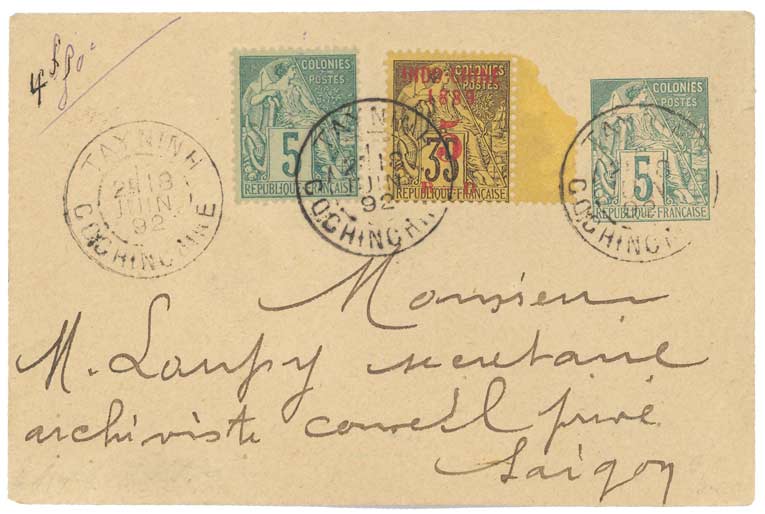 COLONIES
POSTES
5
REPUBLIQUE FRANÇAISE
COLONIES
POSTES
INDO-CHINE
1889
5
35
R D
REPUBLIQUE FRANÇAISE
COLONIES
POSTES
5
REPUBLIQUE FRANÇAISE
TAYNINH
2E 18
JUIN
92
COCHINCHINE
TAYNINH
18
JUIN
92
COCHINCHI
TAY
92
COCHINCH
Monsieur
M. Loupy secretaire
archiviste conseil privé
Saigon